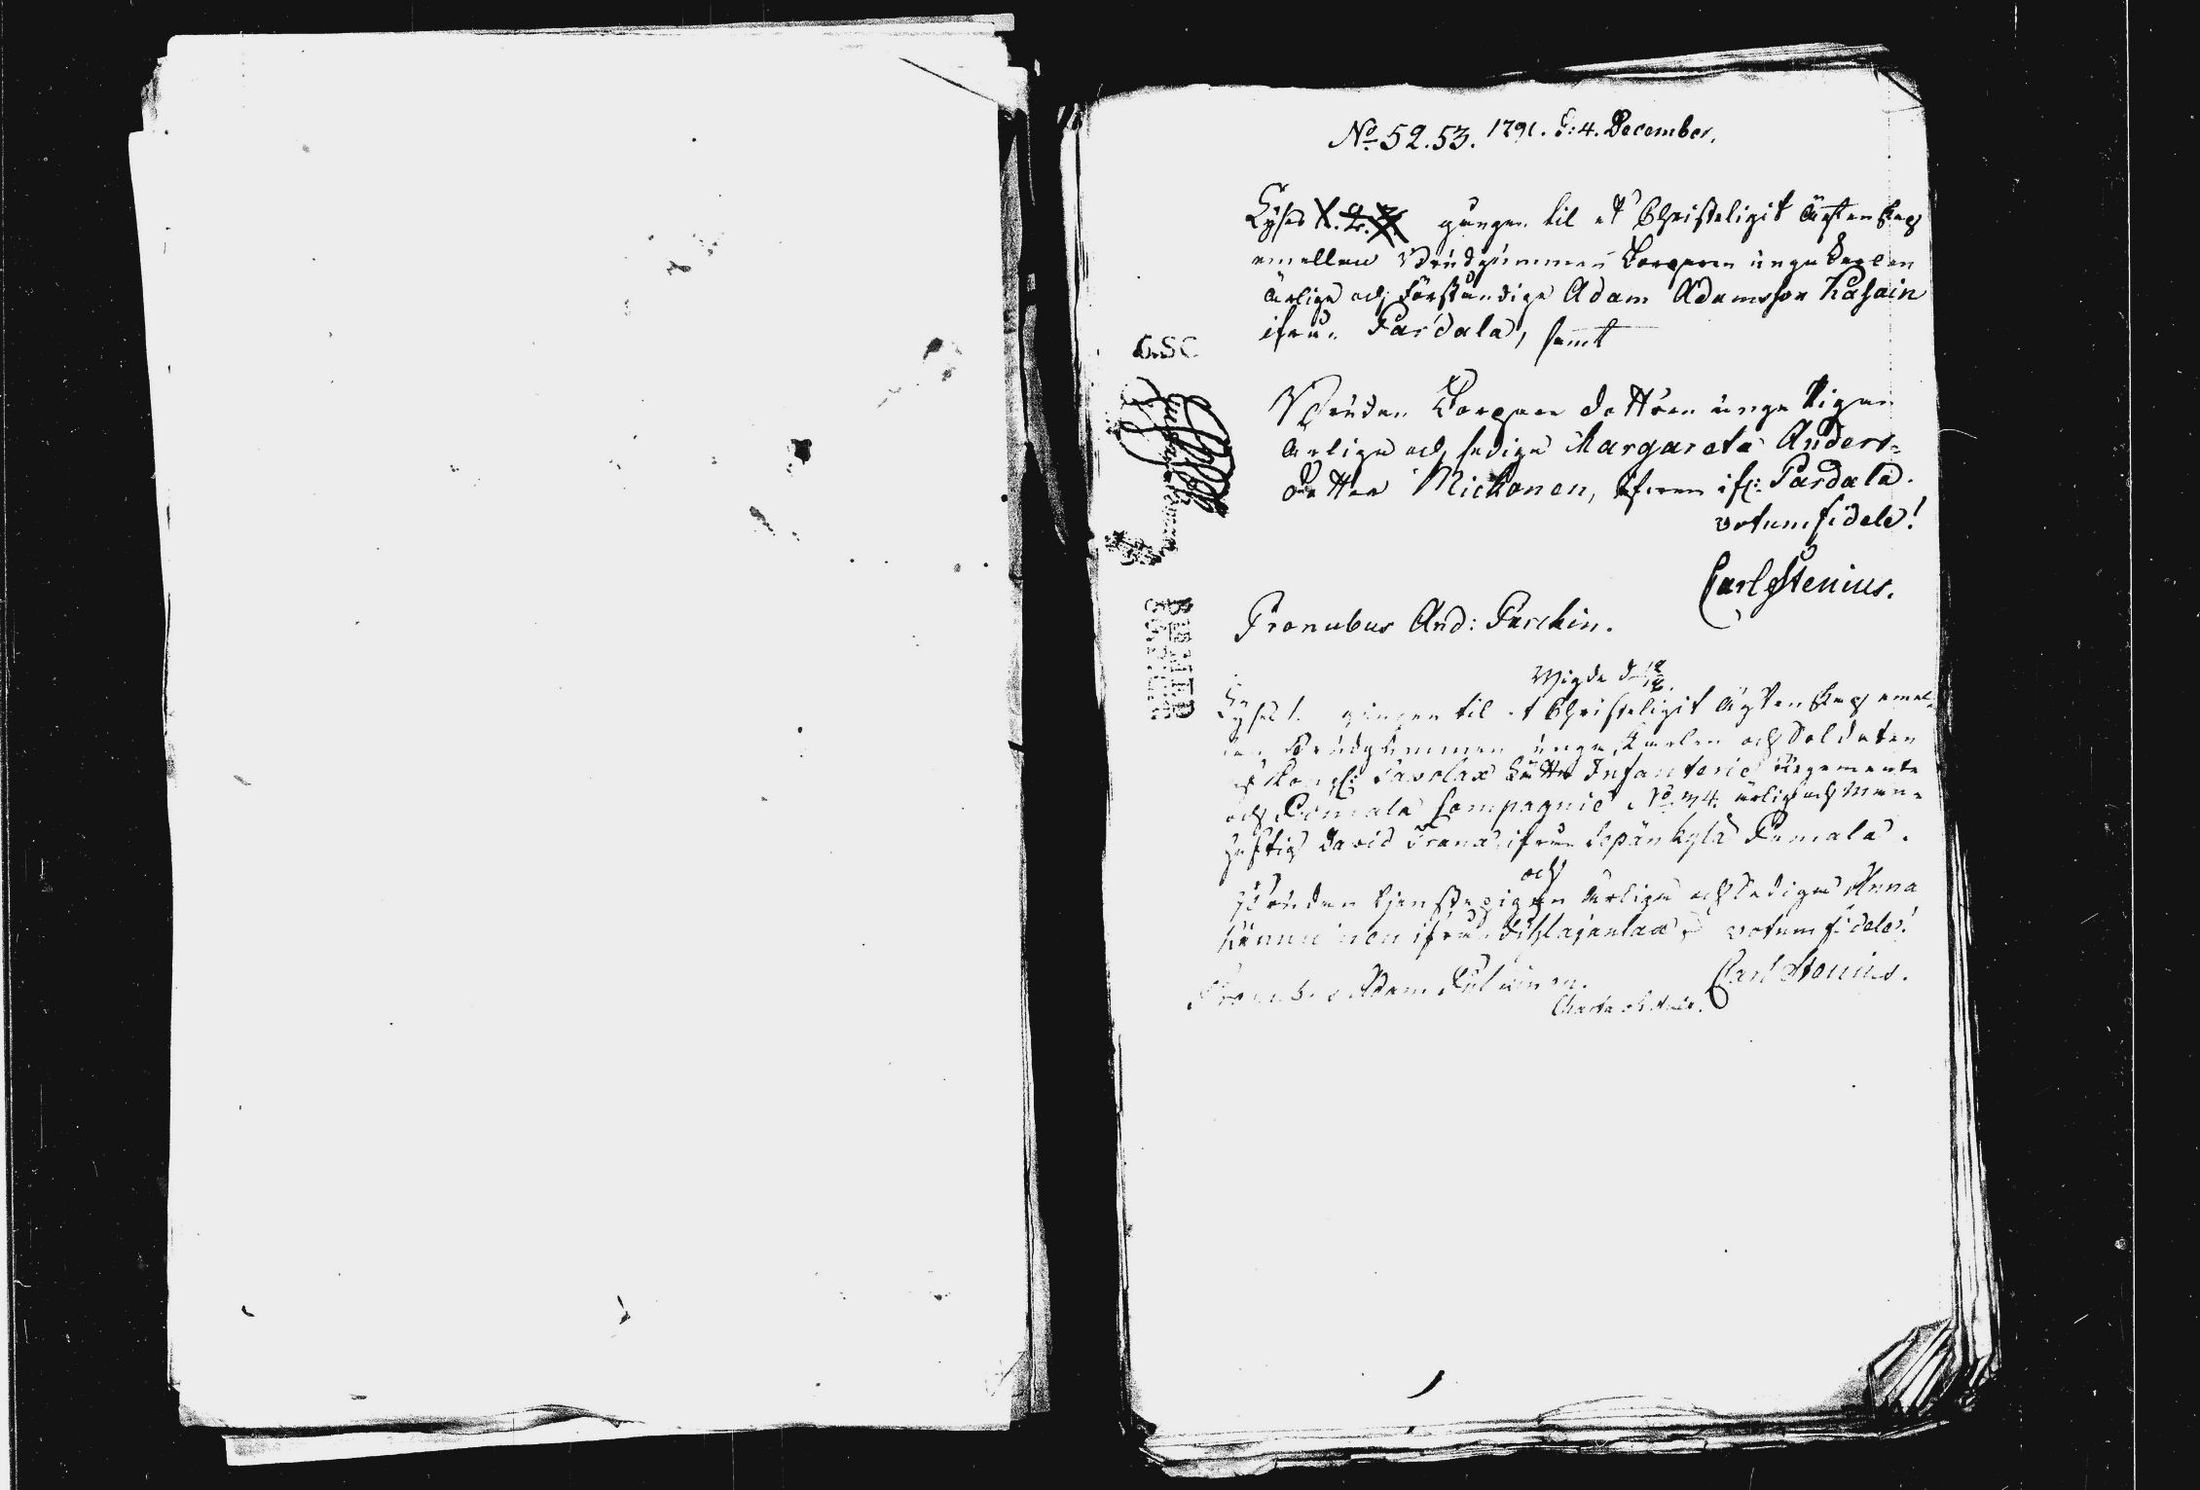 No 52.53. 1791. d: 4. December.
Lyses 1. 2. 3. gången til et Christeligit ägtenskap
emellan Brudgummen Borgaren unge Karlen
ärlige och Förståndige Adam Adamsson Kasain
ifrån Pardala, samt
Bruden Borgare dottren unga Pigan
ärliga och sediga Margareta Anders-
dotter Mickonen, ifr: Pardala.
votum fidele!
Carl Stenius.
Pronubus And: Parckin.
Wigde d
Lyses 1. gången til et Christeligit ägtenskap emel-
lan Brudgummen unge Karlen och Soldaten
Savolax Lätta Infanterie Regemente
och Pumala Compagnie No 74. ärlig och Man-
haftig David Trana ifrån Sepänkylä Pumala.
och
Bruden tjenstepigan ärliga och sediga Anna
ifrån votum fidele!
Carl Stenius.
Pronubus Adam
Charta